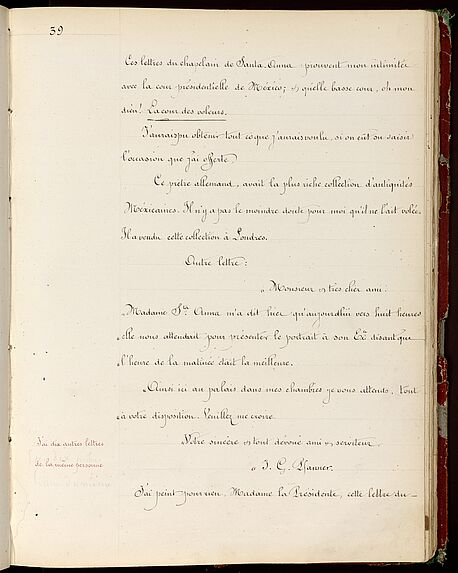 39
Ces lettres du chapelain de Santa Anna prouvent mon intimité
avec la cour présidentielle de México; & quelle basse cour, oh mon
dieu! La cour des voleurs.
J'aurais pu obtenir tout ce que j'aurais voulu, si on eut su saisir
l'occasion que j'ai offerte
Ce prêtre allemand, avait la plus riche collection d'antiquités
Méxicaines. Il n'y a pas le moindre doute pour moi qu'il ne l'ait volée.
Il a vendu cette collection à Londres.
Autre lettre:
"Monsieur & très cher ami:
"Madame Sta. Anna m'a dit hier qu'aujourdhui vers huit heures
"elle nous attendait pour présenter le portrait à son Exce disant que
"l'heure de la matinée était la meilleure.
"Ainsi ici au palais dans mes chambres je vous attends, tout
"à votre disposition. Veuillez me croire
"Votre sincère & tout dévoué ami & serviteur.
J'ai dix autres lettres
de la même personne
"J. G.
J'ai peint pour rien, Madame la Présidente, cette lettre du-